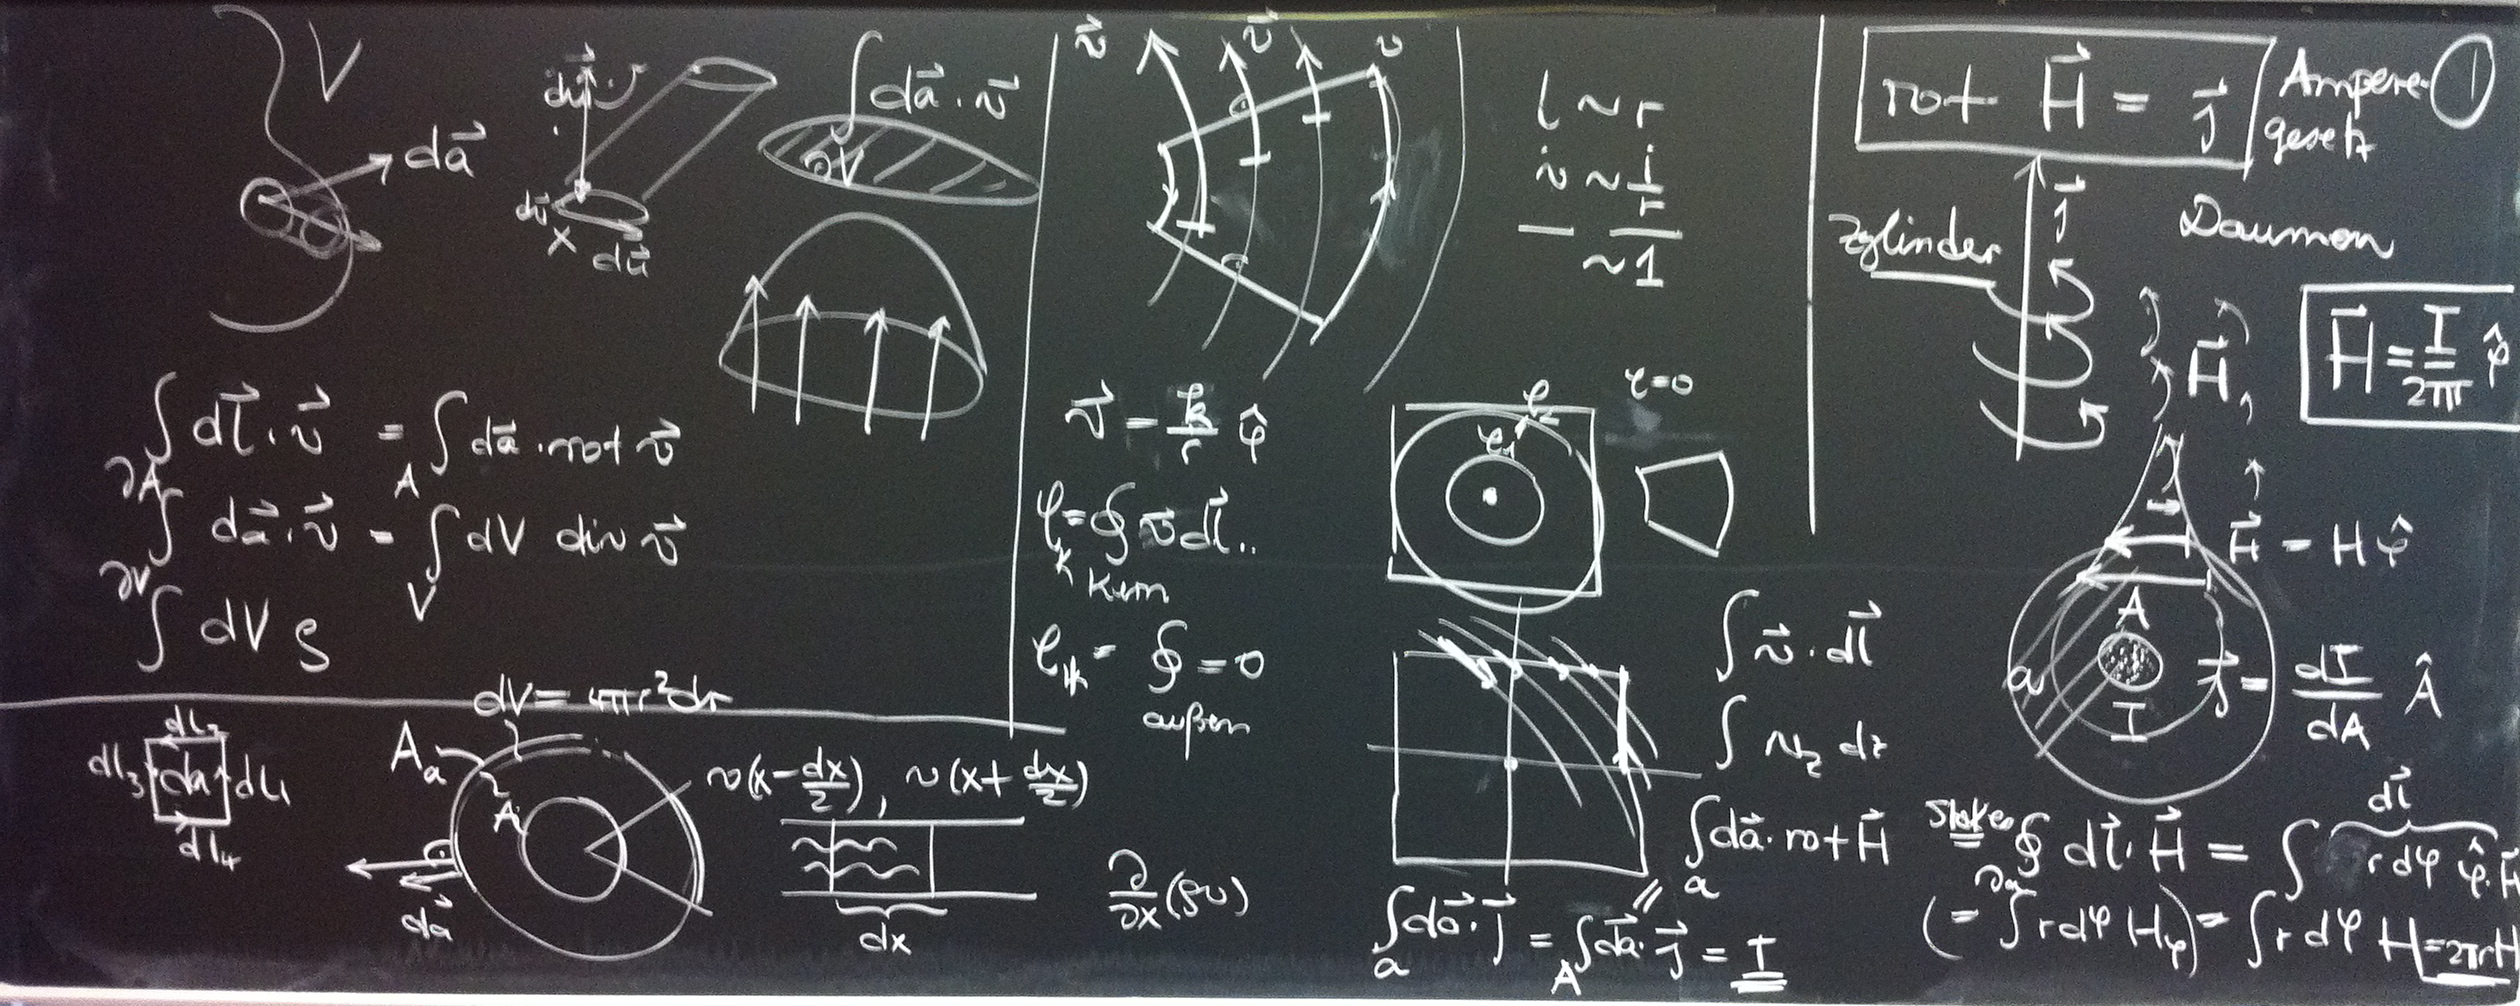 V
da⃗
dv⃗
du⃗
X
∫ da⃗ · v⃗
∂V
∫_∂A dl⃗ · v⃗ = ∫_A da⃗ · rot v⃗
∫_∂V da⃗ · v⃗ = ∫_V dV div v⃗
∫ dV ρ
dV = 4πr²dr
dl₂
dl₃ da dl₁
dl₄
A_a
A_i
da⃗
v(x − dx/2), v(x + dx/2)
dx
∂/∂x (ρv)
v⃗ v⃗ v
l ~ r
v ~ 1/r
~ 1
v⃗ = k/r φ̂
φ_K = ∮ v⃗ dl⃗ ..
Kern
∮ = 0
außen
φ₂
φ₁
φ=0
∫ v⃗ · dl⃗
∫ v_z dz
∫_a da⃗ · rot H⃗
∫_a da⃗ · j⃗ = ∫_A da⃗ · j⃗ = I
rot H⃗ = j⃗ Ampere-
gesetz
1
j⃗
Zylinder
Daumen
H⃗
H⃗ = I/2πr φ̂
H⃗ = H φ̂
A
a
I
j⃗ = dI/dA Â
dl⃗
Stokes = ∮_∂a dl⃗ · H⃗ = ∫ r dφ φ̂ · H⃗
(= ∫ r dφ H_φ) = ∫ r dφ H = 2πrH